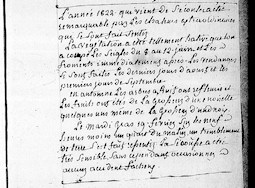 L'année 1822 qui vient de s'écouler a été
remarquable par les chaleurs extraordinaires
que se sont fait sentir
La végétation a été tellement hative que l'on
a coupé les seigles du 8 au 12 juin et les
froments immédiatement après. Les vendanges
se sont faites les derniers jours d'aout et les
premiers jours de septembre.
En automne les arbres fruitiers refleuris et
les fruits ont été de la grosseur d'une noisette
quelques uns même de la grosseur d'une noix
Le mardi gras 19 février sur les neuf
heures moins un quart du matin, un tremblement
de terre s'est fait ressentir. La secousse a été
très sensible sans cependant occasionner
aucun accident facheux